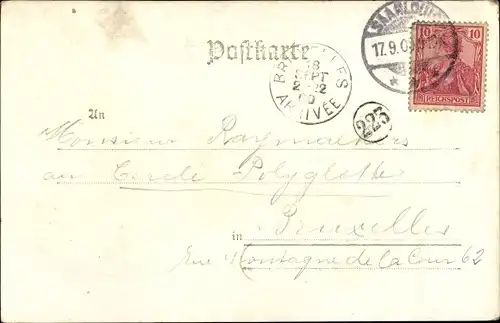 Postkarte
SAARLOUIS
17.9.0
10 10
REICHSPOST
BRUXELLES
18
SEPT
ARRIVÉE
223
An
Monsieur Raymaekers
au Cercle Polyglotte
in Bruxelles
Rue Montagne de la Cour 62